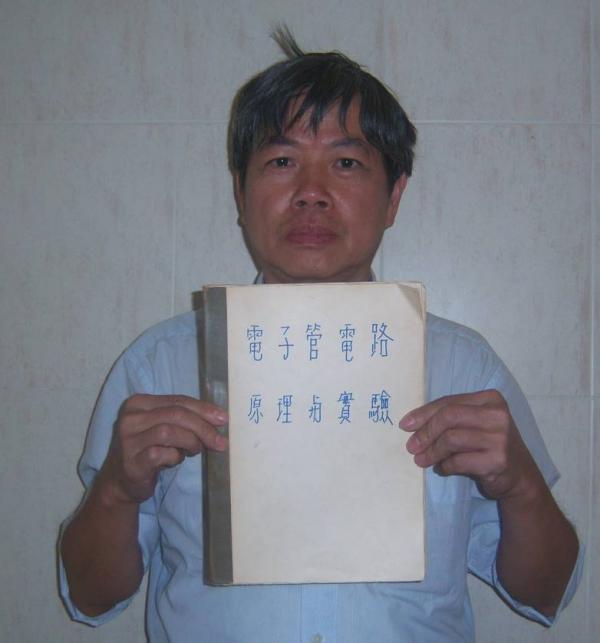 電子管電路
原理与實驗